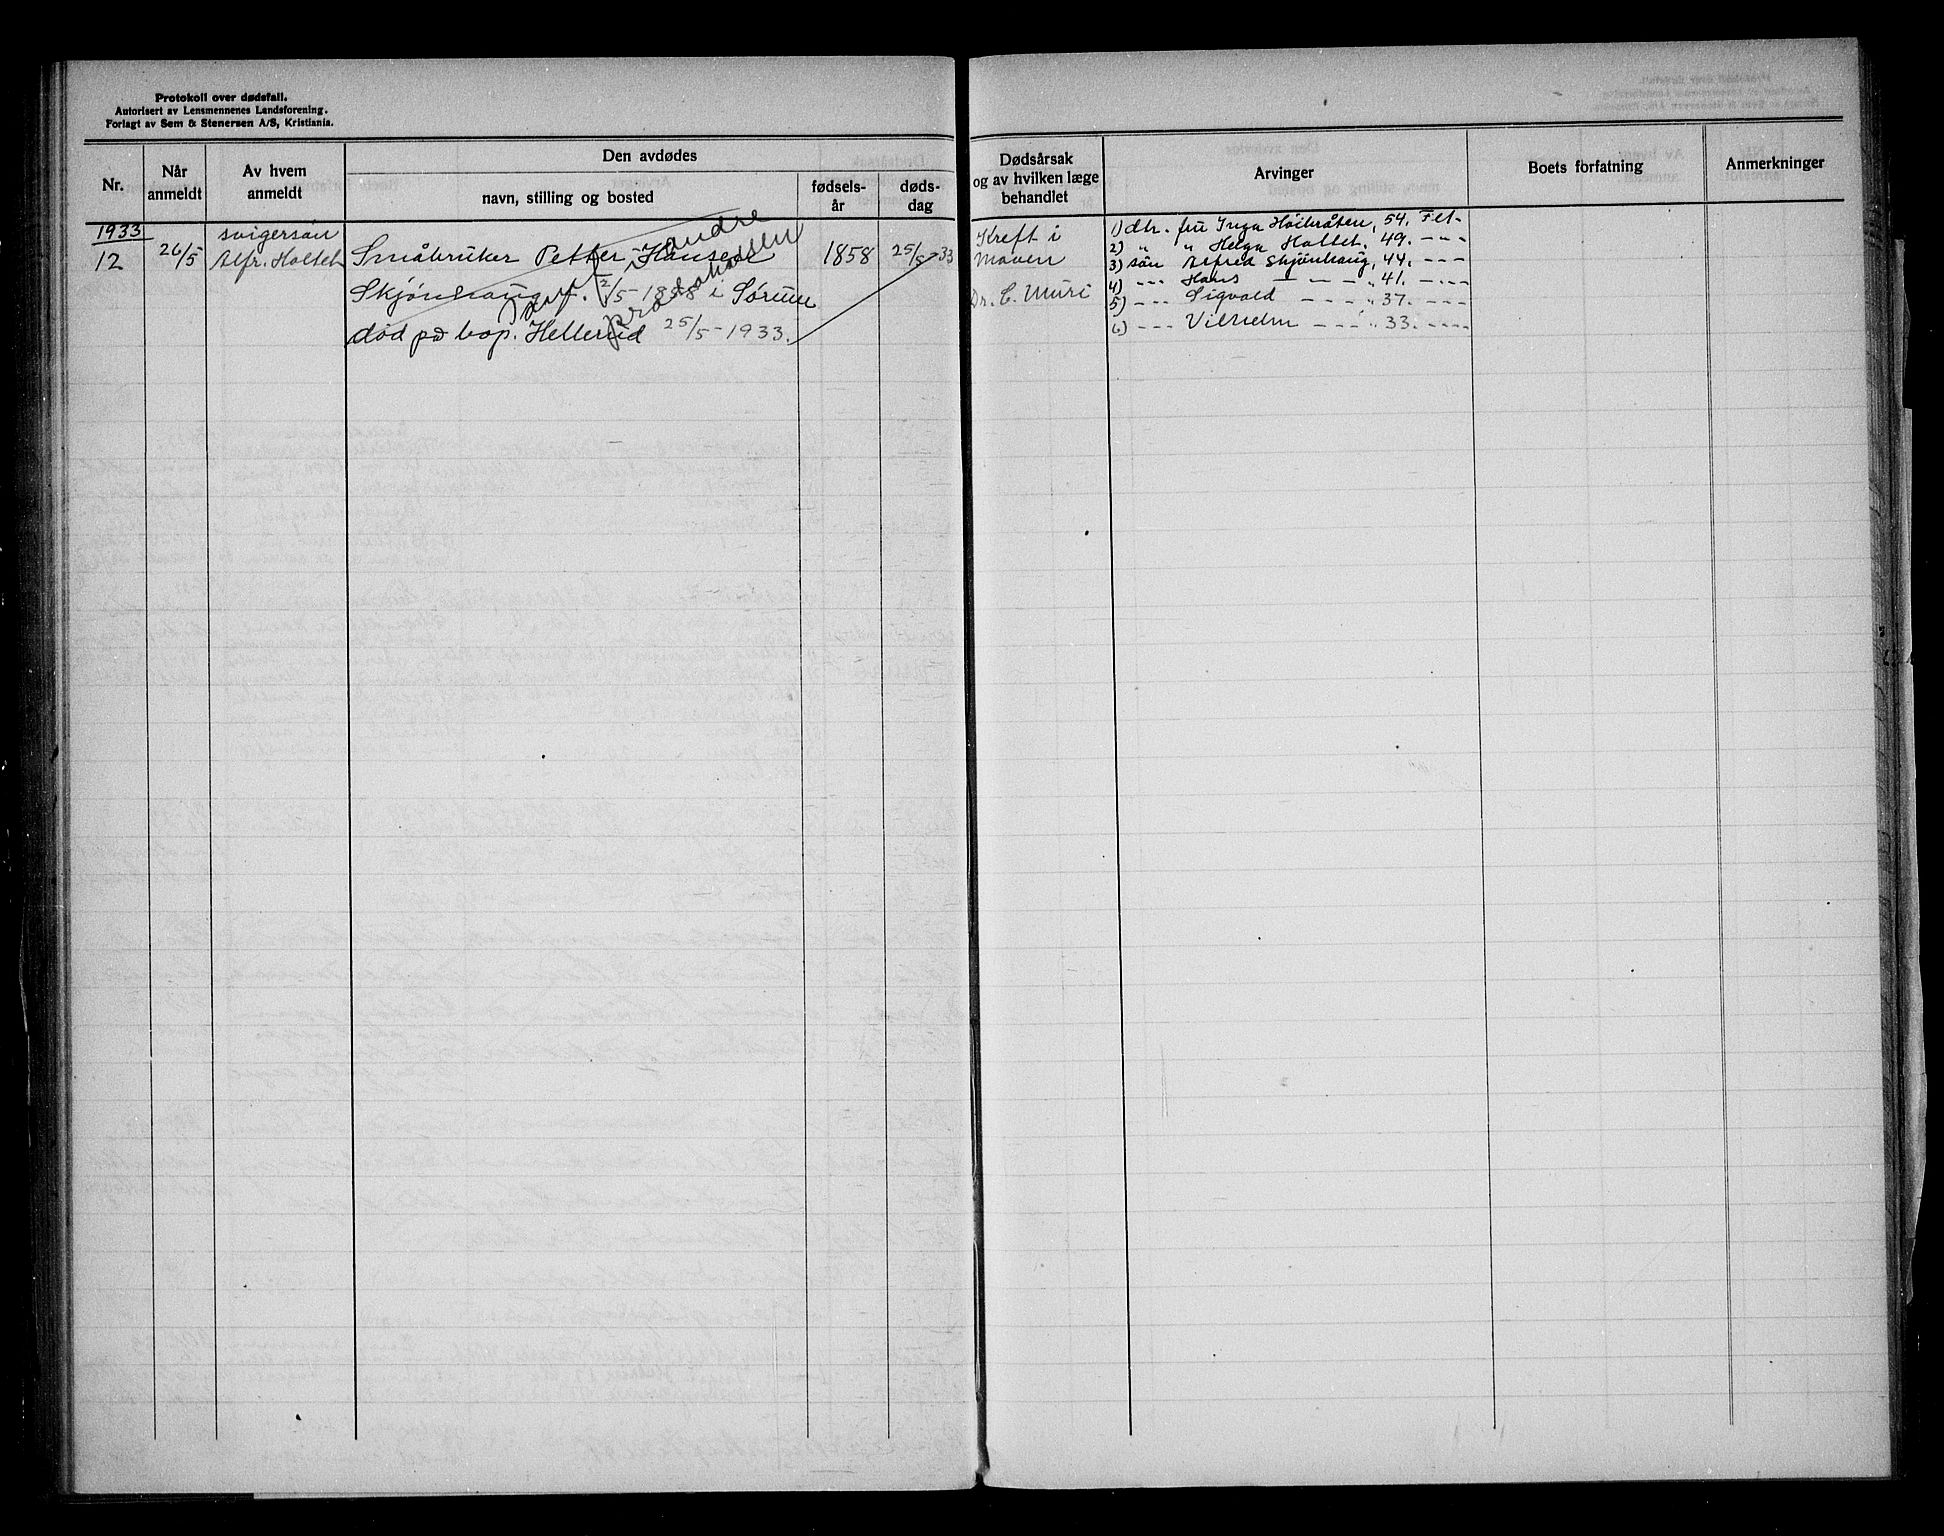 Protokoll over dødsfall.
Autorisert av Lensmennenes Landsforening.
Forlagt av Sem & Stenersen A/S, Kristiania.
Nr.
Når anmeldt
Av hvem anmeldt
Den avdødes
navn, stilling og bosted
fødselsår
dødsdag
Dødsårsak og av hvilken læge behandlet
Arvinger
Boets forfatning
Anmerkninger
1933
12
26/5
svigersøn
Alfr. Holtet
Småbruker Petter Hansen
Skjønhaug f. 2/5-1858 i Sørum
død på bop. Hellerud 25/5-1933.
Over i andre
protokollen
1858
25/5-33
Kreft i
Maven
Dr. C. Muri
1) dtr. fru Inga Høibråten, 54. Fet-
2) " " Helga Holtet, 49. - - -
3) søn Alfred Skjønhaug, 44. - - -
4) - - - Hans - - - " 41. - - - -
5) - - - Sigvald - - - " 37. - - - -
6) - - - Vilhelm - - - " 33. - - - -